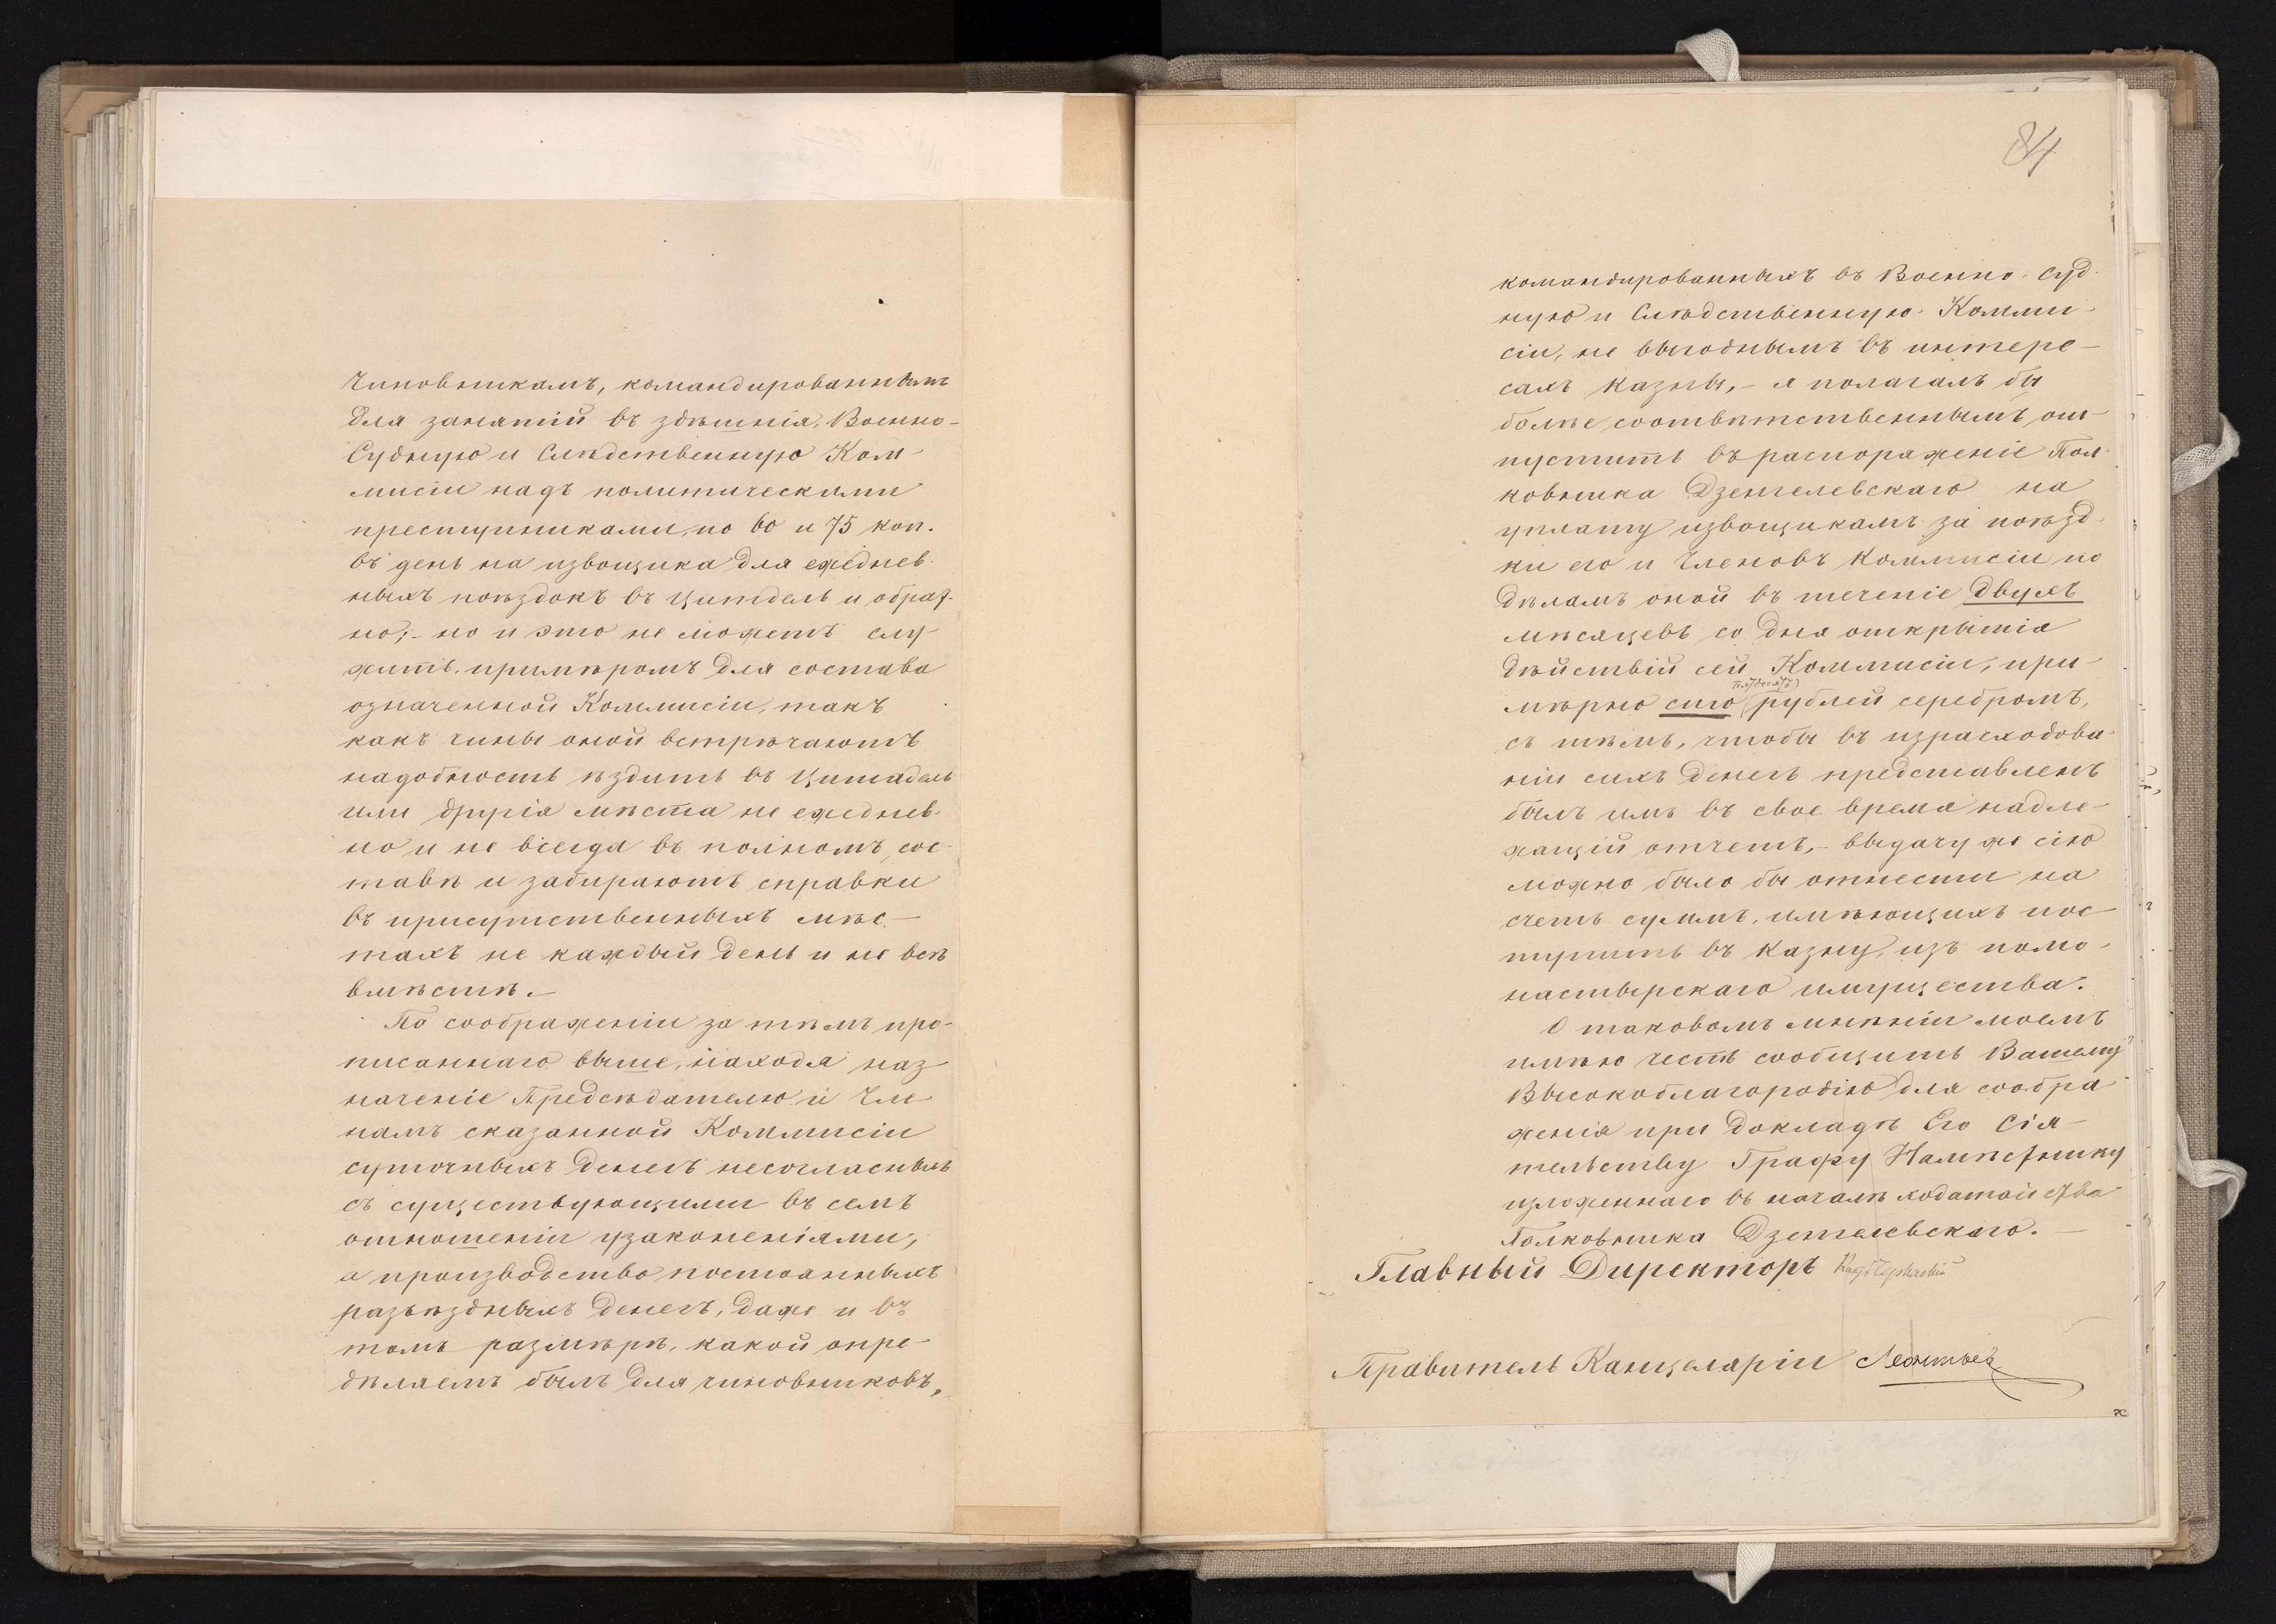 Чиновникамъ, командированнымъ
для занятій въ здѣшнія Военно-
Судную и Слѣдственную Ком-
мисіи надъ политическими
преступниками, по 60 и 75 коп.
въ день на извощика для ежеднев-
ныхъ поѣздокъ въ Цитдель и обрат-
но;- но и это не можетъ слу-
жить примѣромъ для состава
означенной Коммисіи, такъ
какъ чины оной встрѣчаютъ
надобность ѣздить въ Цитадель
или другія мѣста не ежеднев-
но и не всегда въ полномъ сос-
тавѣ и забираютъ справки
въ присутственныхъ мѣс-
тахъ не каждый день и не всѣ
вмѣстѣ.-
По соображеніи за тѣмъ про-
писаннаго выше, находя наз-
наченіе Предсѣдателю и Чле-
намъ сказанной Коммисіи
суточныхъ денегъ несогласнымъ
съ существующими въ семъ
отношеніи узаконеніями,
а производство постоянныхъ
разъѣздныхъ денегъ, даже и въ
томъ размѣрѣ, какой опре-
дѣляемъ былъ для чиновниковъ,
84
командированныхъ въ Военно-Суд-
ную и Слѣдственную Комми-
сіи, не выгоднымъ въ интере-
сахъ казны,- я полагалъ бы
болѣе соотвѣтственнымъ от-
пустить въ распоряженіе Пол-
ковника Дзенгелевскаго на
уплату извощикамъ за поѣзд-
ки его и Членовъ Коммисіи по
дѣламъ оной въ теченіе двухъ
мѣсяцевъ со дня открытія
дѣйствій сей Коммисіи, при-
мѣрно сто рублей серебромъ,
съ тѣмъ, чтобы въ израсходова-
ніи сихъ денегъ представленъ
былъ имъ въ свое время надле-
жащій отчетъ,- выдачу же сію
можно было бы отнести на
счетъ суммъ, имѣющихъ пос-
тупить въ Казну, изъ помо-
настырскаго имущества.
О таковомъ мнѣніи моемъ
имѣю честь сообщить Вашему
Высокоблагородію для сообра-
женія при докладѣ Его Сія-
тельству Графу Намѣстнику
изложеннаго въ началѣ ходатайства
Полковника Дзенгелевскаго.-
Главный Директоръ
Правитель Канцеляріи Леонтьевъ